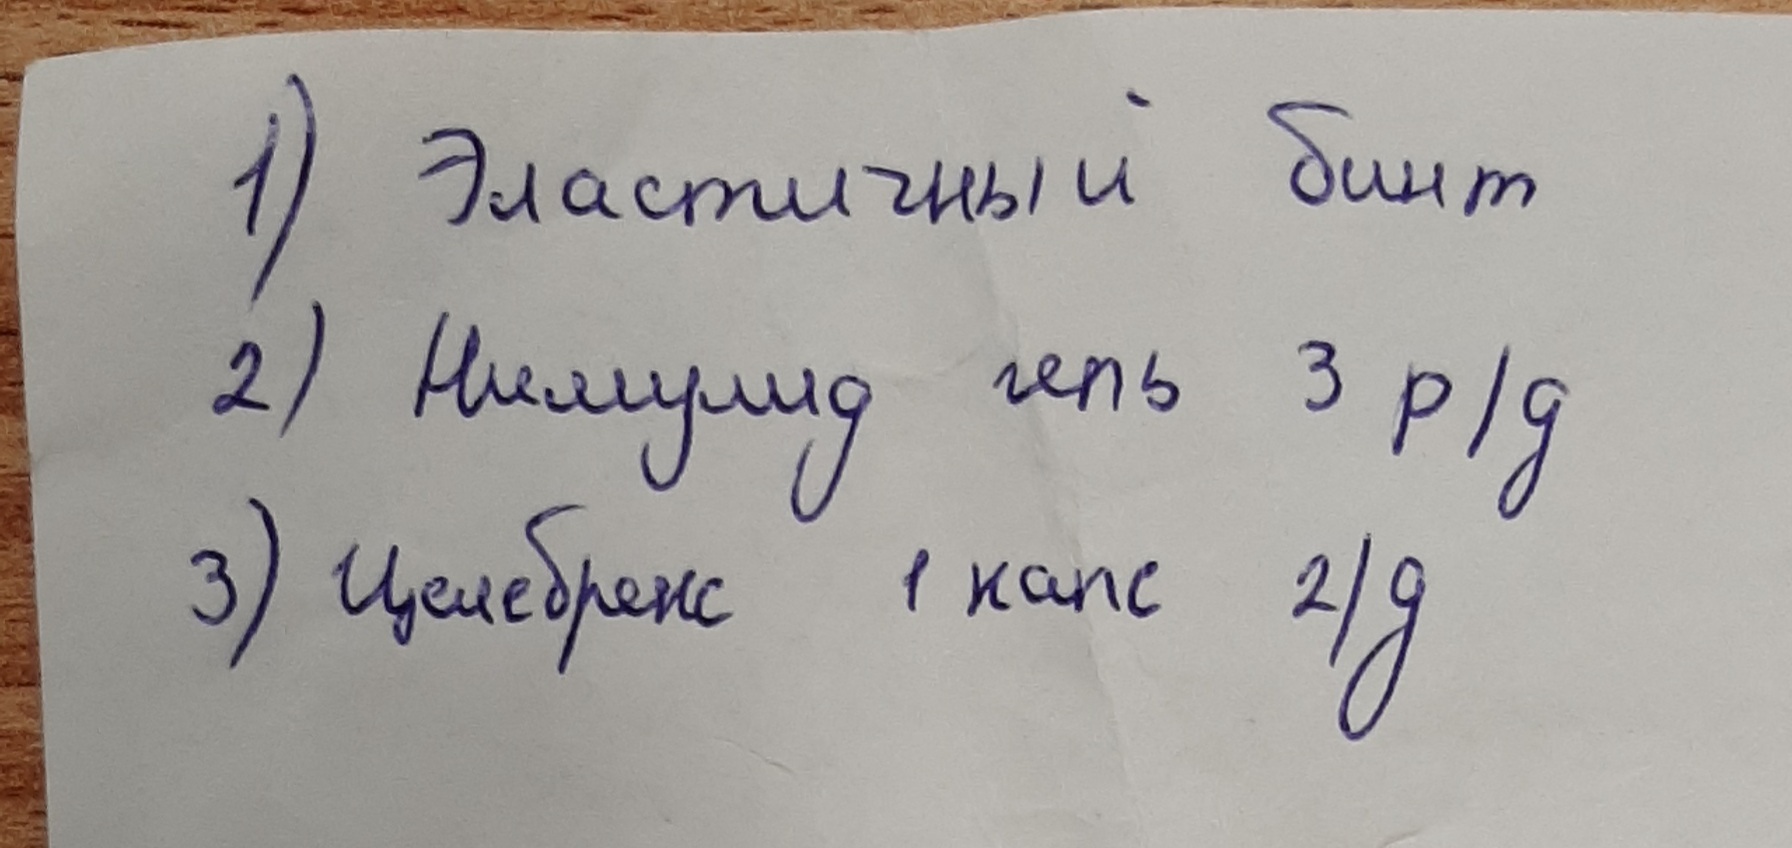 1) Эластичный бинт
2) Нимулид гель 3 р/д
3) Целебрекс 1 капс 2/д